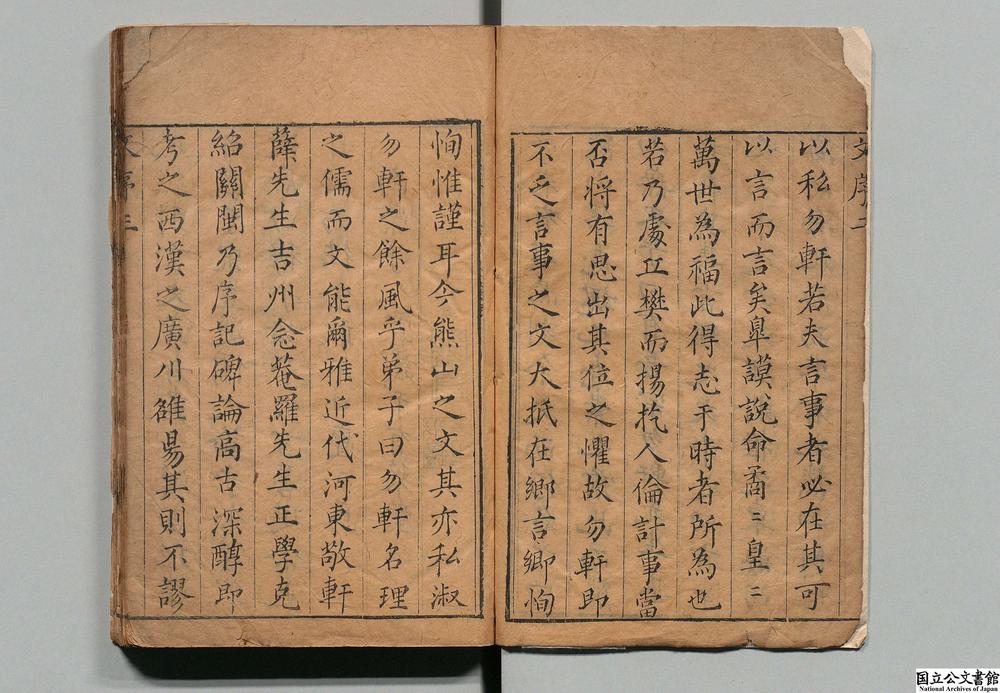 文序二
以私勿軒若夫言事者必在其可
以言而言矣臯謨說命矞〻皇〻
萬世為福此得志于時者所為也
若乃處江樊而揚扢人倫計事當
否將有思出其位之懼故勿軒即
不乏言事之文大抵在鄉言鄉恂
恂惟謹耳今熊山之文其亦私淑
勿軒之餘風乎弟子曰勿軒名理
之儒而文能爾雅近代河東敬軒
薛先生吉州念菴羅先生正學克
紹關閩乃序記碑論高古深醇即
考之西漢之廣川雒昜其則不謬
文序三
国立公文書館
National Archives of Japan